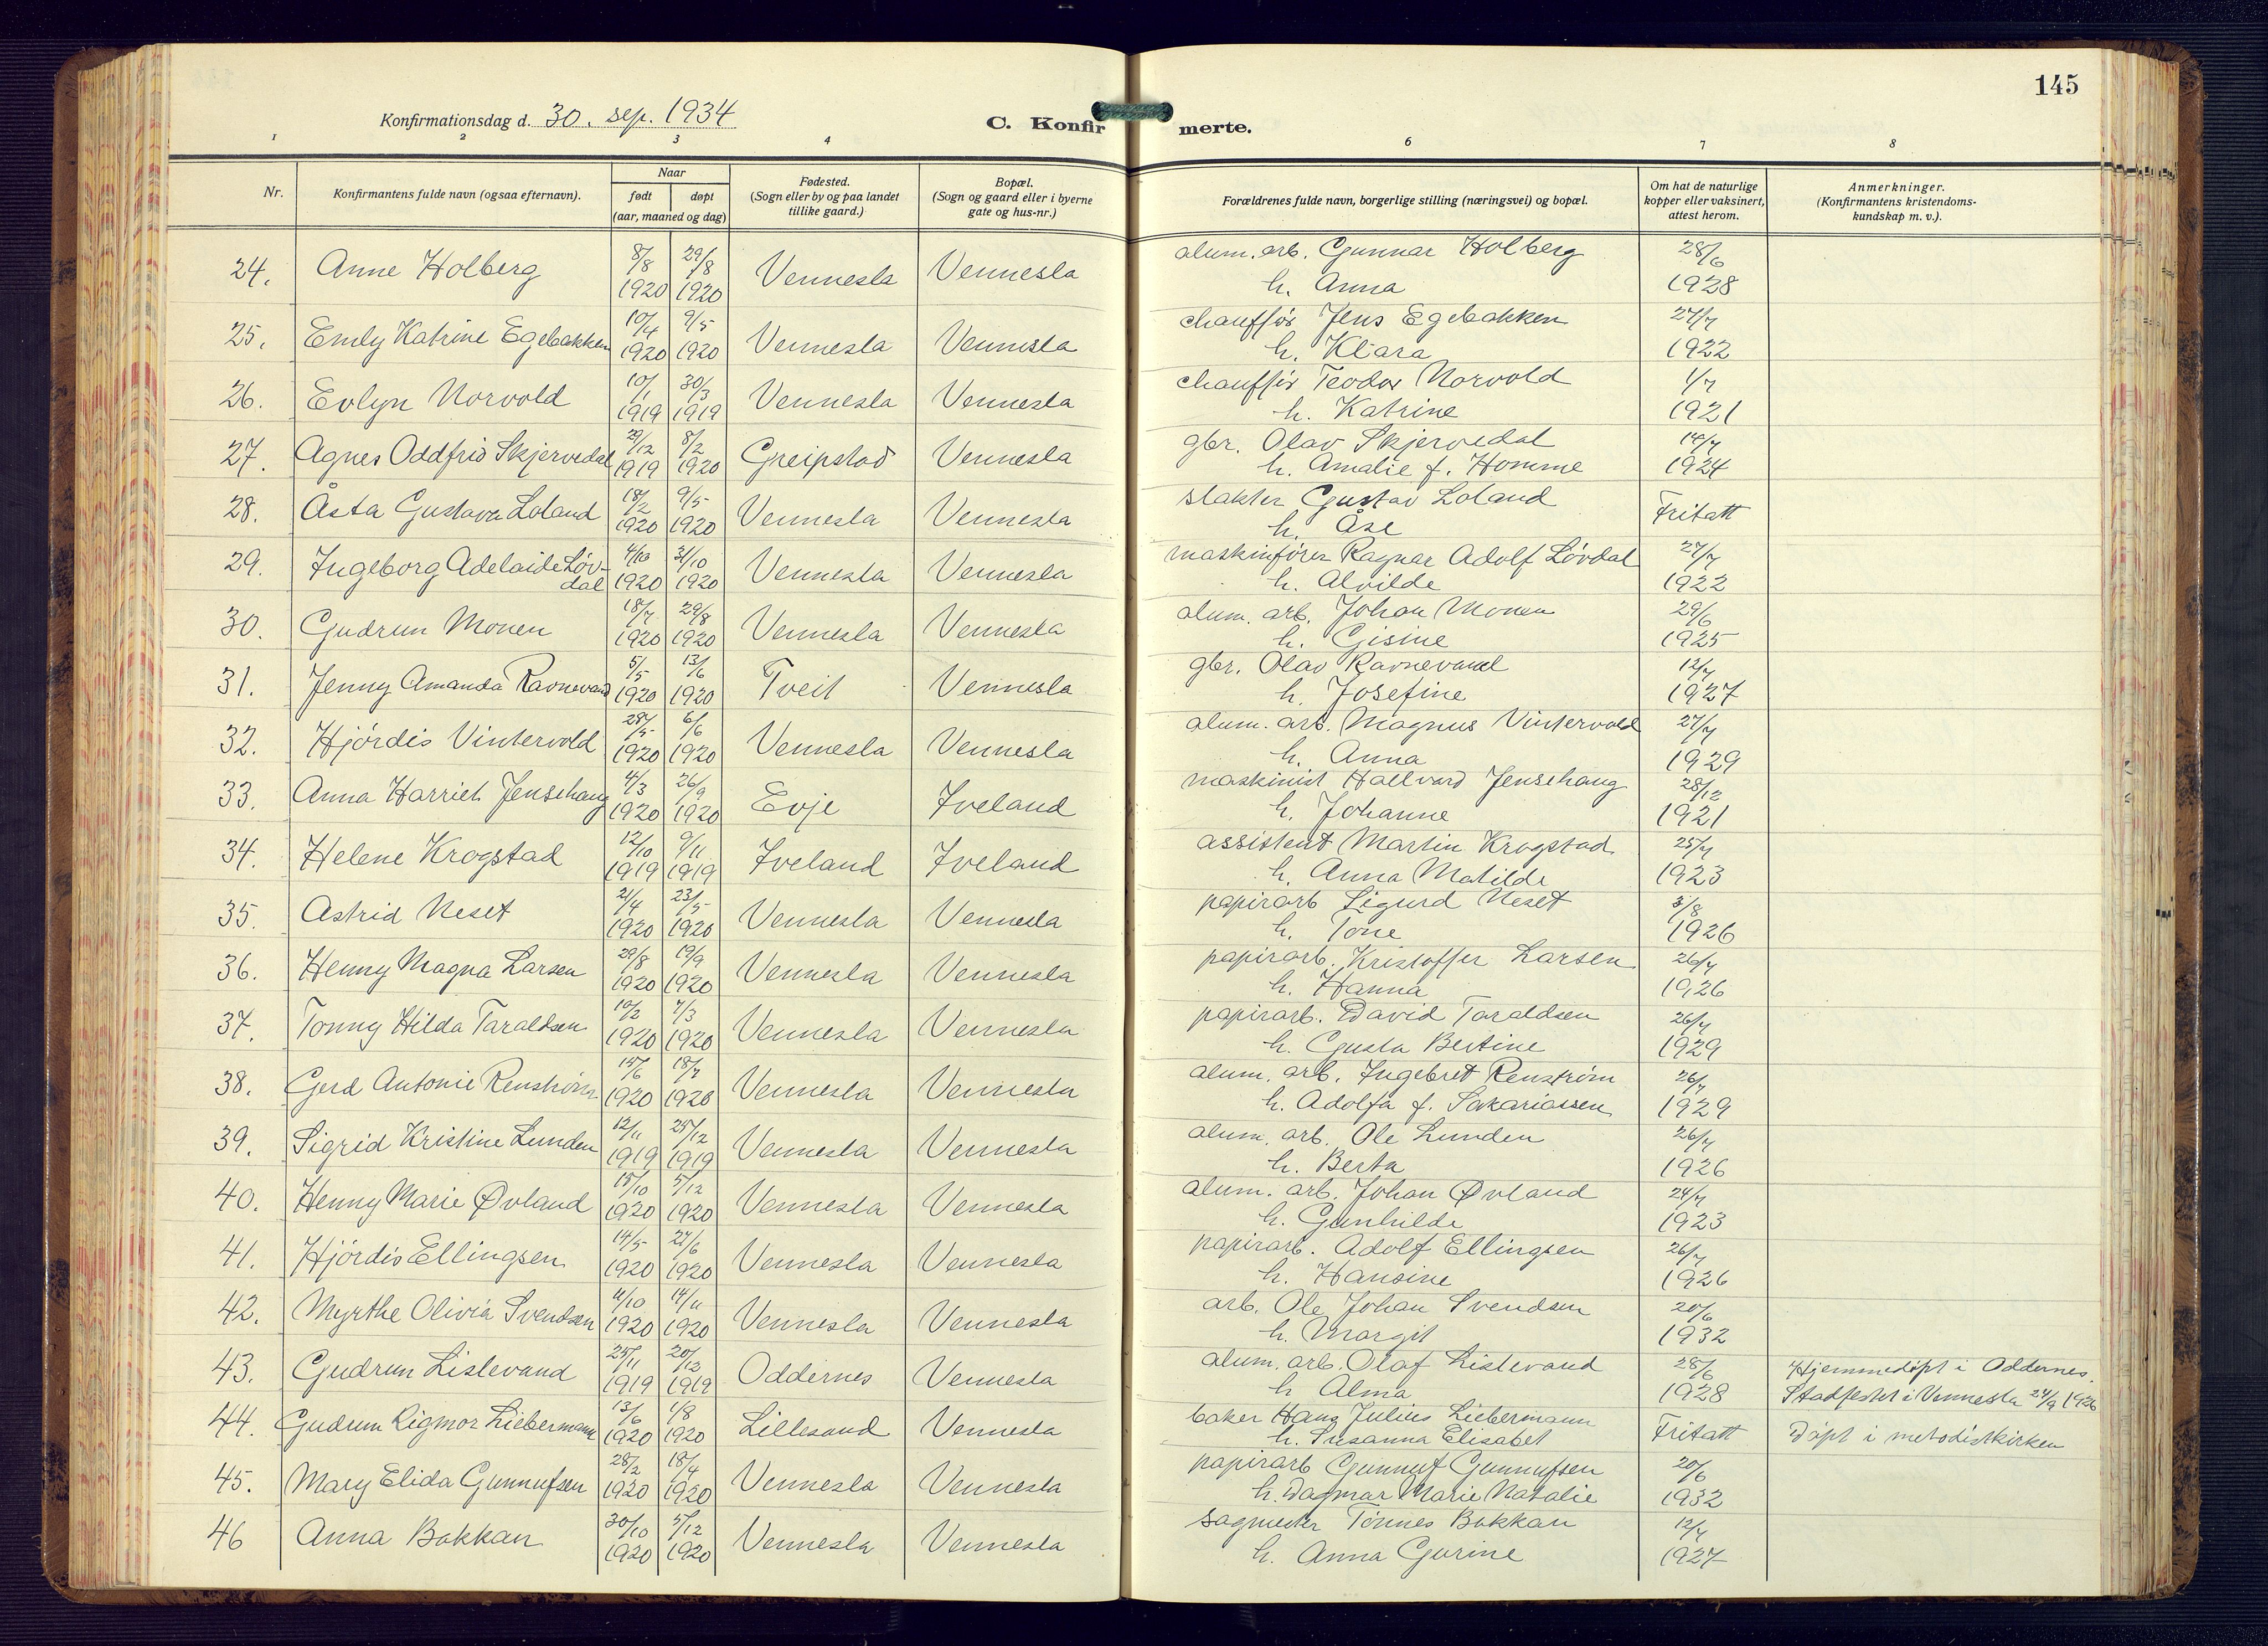 145
Konfirmationsdag d. 30. sep. 1934
C. Konfirmerte.
1 2 3 4 6 7 8
Nr. Konfirmantens fulde navn (ogsaa efternavn). Naar født døpt (aar, maaned og dag) Fødested. (Sogn eller by og paa landet tillike gaard.) Bopæl. (Sogn og gaard eller i byerne gate og hus-nr.) Forældrenes fulde navn, borgerlige stilling (næringsvei) og bopæl. Om hat de naturlige kopper eller vaksinert, attest herom. Anmerkninger. (Konfirmantens kristendomskundskap m. v.).
24. Anne Holberg 8/8 1920 29/8 1920 Vennesla Vennesla alum. arb. Gunnar Holberg 28/6
h. Anna 1928
25. Emly Katrine Egebakken 10/4 1920 9/5 1920 Vennesla Vennesla chauffør Jens Egebakken 27/7
h. Klara 1922
26. Evlyn Norvold 10/1 1919 30/3 1919 Vennesla Vennesla chauffør Teodor Norvold 1/7
h. Katrine 1921
27. Agnes Oddfrid Skjervedal 29/12 1919 8/2 1920 Greipstad Vennesla gbr. Olav Skjervedal 14/7
h. Amalie f. Homme 1924
28. Åsta Gustava Loland 18/2 1920 9/5 1920 Vennesla Vennesla slakter Gustav Loland Fritatt
h. Åse
29. Ingeborg Adelaide Løvdal 4/10 1920 31/10 1920 Vennesla Vennesla maskinfører Ragnar Adolf Lövdal 27/7
h. Alvilde 1922
30. Gudrun Monen 18/7 1920 29/8 1920 Vennesla Vennesla alum. arb. Johan Monen 29/6
h. Gisine 1925
31. Jenny Amanda Ravnevand 5/5 1920 13/6 1920 Tveit Vennesla gbr. Olav Ravnevand 12/7
h. Josefine 1927
32. Hjördis Vintervold 28/5 1920 6/6 1920 Vennesla Vennesla alum. arb. Magnus Vintervold 27/7
h. Anna 1929
33. Anna Harriet Jensehaug 4/3 1920 26/9 1920 Evje Iveland maskinist Hallvard Jensehaug 28/12
h. Johanne 1921
34. Helene Krogstad 12/10 1919 9/11 1919 Iveland Iveland assistent Martin Krogstad 25/7
h. Anna Matilde 1923
35. Astrid Neset 21/4 1920 23/5 1920 Vennesla Vennesla papirarb Sigurd Neset 3/8
h. Tone 1926
36. Henny Magna Larsen 29/8 1920 19/9 1920 Vennesla Vennesla papirarb. Kristoffer Larsen 26/7
h. Hanna 1926
37. Tonny Hilda Taraldsen 10/2 1920 7/3 1920 Vennesla Vennesla papirarb. David Taraldsen 26/7
h. Gusta Bertine 1929
38. Gerd Antonie Renström 15/6 1920 18/7 1920 Vennesla Vennesla alum. arb. Ingebret Renström 26/7
h. Adolfa f. Sakariassen 1929
39. Sigrid Kristine Lunden 12/11 1919 25/12 1919 Vennesla Vennesla alum. arb. Ole Lunden 26/7
h. Berta 1926
40. Henny Marie Øvland 15/10 1920 5/12 1920 Vennesla Vennesla alum. arb. Johan Øvland 24/7
h. Gunhilde 1923
41. Hjördis Ellingsen 14/5 1920 27/6 1920 Vennesla Vennesla papirarb. Adolf Ellingsen 26/7
h. Hansine 1926
42. Myrthe Olivia Svendsen 4/10 1920 14/11 1920 Vennesla Vennesla arb. Ole Johan Svendsen 20/6
h. Margit 1932
43. Gudrun Listevand 25/11 1919 20/12 1919 Oddernes Vennesla alum. arb. Olaf Listevand 28/6 Hjemmedöpt i Oddernes.
h Alma 1928 Stadfestet i Vennesla 24/9 1926
44. Gudrun Rigmor Liebermann 13/6 1920 1/8 1920 Lillesand Vennesla baker Hans Julius Liebermann Fritatt Döpt i metodistkirken
h. Susanna Elisabet
45. Mary Elida Gunnufsen 28/2 1920 18/4 1920 Vennesla Vennesla papirarb Gunnuf Gunnufsen 20/6
h. Dagmar Marie Natalie 1932
46 Anna Bakkan 30/10 1920 5/12 1920 Vennesla Vennesla sagmester Tönnes Bakkan 12/7
h. Anna Gurine 1927